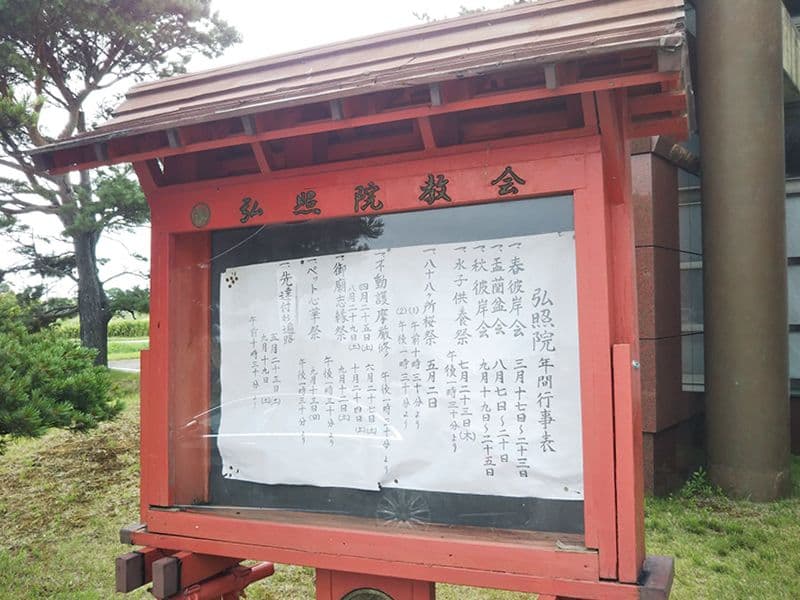 弘照院教会
弘照院年間行事表
一、春彼岸会 三月十七日〜二十三日
一、盂蘭盆会 八月七日〜二十日
一、秋彼岸会 九月十九日〜二十五日
一、水子供養祭 七月二十三日(木)
午後一時三十分より
一、八十八ヶ所桜祭 五月二日
(1) 午前十時三十分より
(2) 午後一時三十分より
一、不動護摩厳修 午後一時三十分より
四月二十五日(土) 六月二十七日(土)
八月二十九日(土) 十月二十四日(土)
一、御廟志縁祭 九月十二日(土)
午後一時三十分より
一、ペット心華祭 九月十三日(日)
午後一時三十分より
一、先達付お遍路 五月二十三日(土)
九月十九日(土)
午前十時三十分より